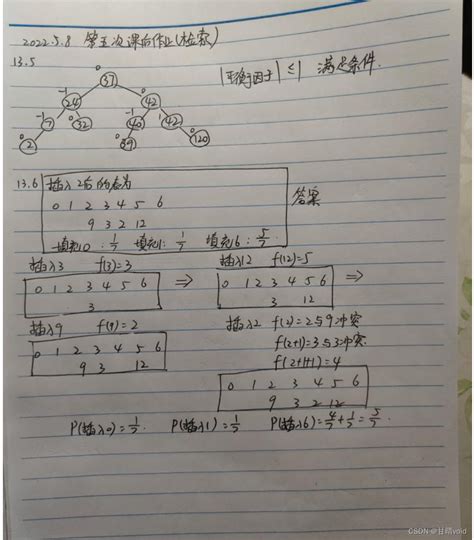 2022.5.8 第五次课后作业(检索)
13.5
|平衡因子| ≤1 满足条件.
0
37
-1 24 0 42
-1 7 0 32 -1 40 -1 42
0 2 0 39 0 120
13.6 插入2后的表为
0 1 2 3 4 5 6
9 3 2 12
填充0: 1/7 填充1: 1/7 填充6: 5/7
答案
插入3 f(3)=3
0 1 2 3 4 5 6
3
⇒
插入12 f(12)=5
0 1 2 3 4 5 6
3 12
⇒
插入9 f(9)=2
0 1 2 3 4 5 6
9 3 12
插入2 f(2)=2与9冲突
f(2+1)=3与3冲突.
f(2+1+1)=4
0 1 2 3 4 5 6
9 3 2 12
P(插入0)=1/7. P(插入1)=1/7 P(插入6)=4/7+1/7=5/7.
CSDN @甘晴void